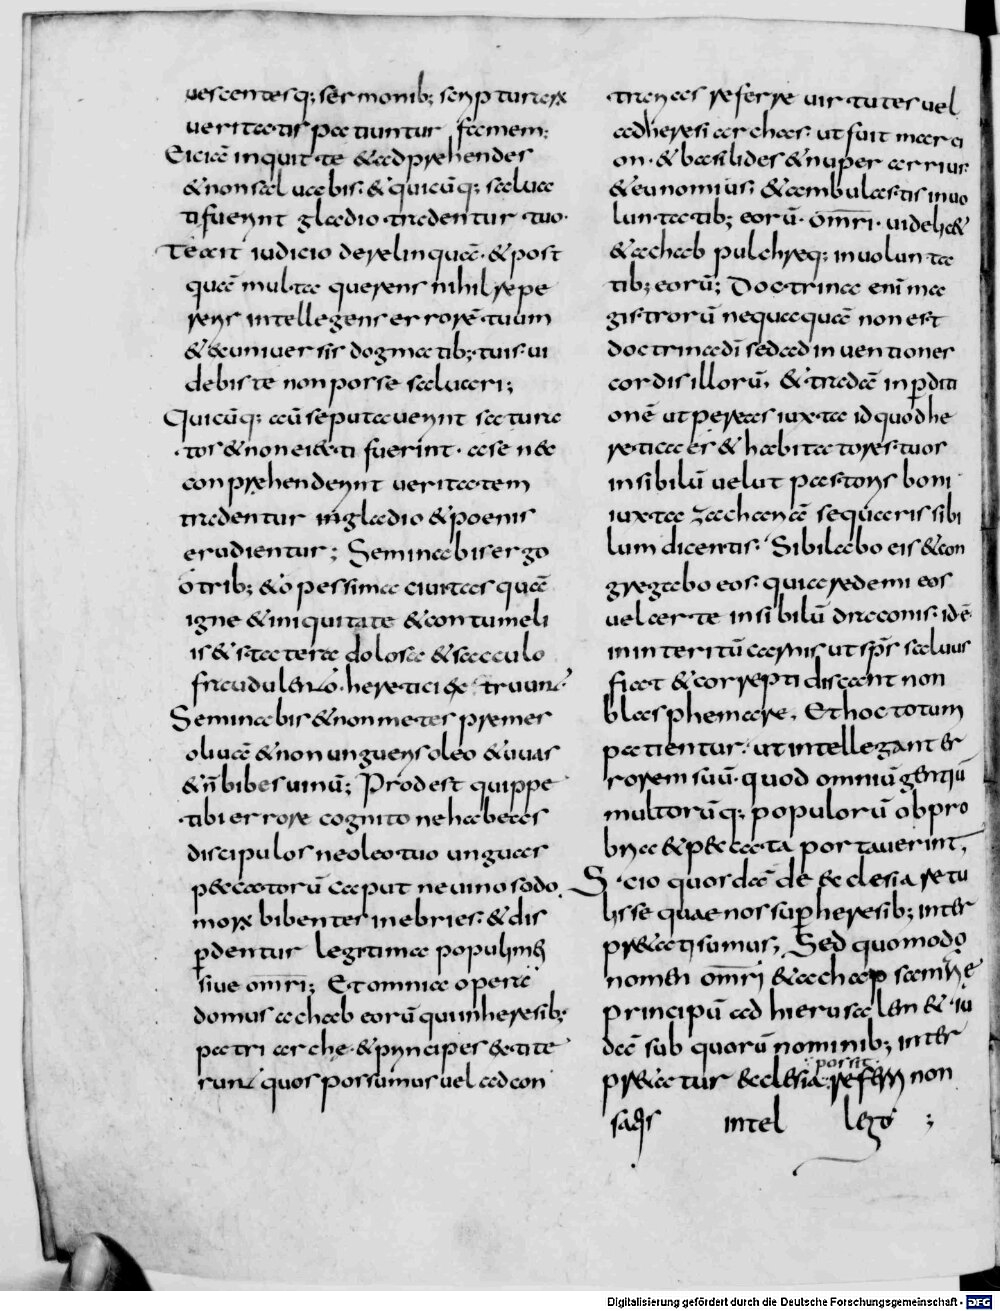 uescentesq; sermonib; scripturarũ
ueritatis patiuntur famem:
Eiciã inquit te & adprehendes
& non saluabis· & quicũq; salua
ti fuerint gladio tradentur tuo·
Te ait iudicio derelinquã· & post
quã multa querens nihil repe
rens intellegens errorẽ tuum
& a uniuersis dogmatib; tuis ui
debis te non posse saluari;
Quicũq; aũ se putauerint satura
tos & non eiecti fuerint· a se nec
conprehenderint ueritatem
tradentur in gladio & poenis
erudientur; Seminabis ergo
o trib; & o pessima ciuitas quã
igne & iniquitate & contumeli
is & statera dolosa & sacculo
fraudulento· heretici
Seminabis & non metes premes
oliuã & non ungueris oleo & uuas
& ñ bibes uinũ; Prodest quippe
tibi errore cognito ne habeas
discipulos ne oleo tuo unguas
peccatorũ caput ne uino sodo
morũ bibentes inebries· & dis
pdentur legitima populi mei
siue omri; Et omnia opera
domus achab eorũ qui in heresib;
patriarche· & principes & tite
runt quos possumus uel ad con
trarias referre uirtutes uel
ad heresiarchas· ut fuit marci
on· & basilides & nuper arrius
& eunomius; & ambulastis in uo
luntatib; eorũ· omri· uidelic&
& achab pulchreq; in uolunta
tib; eorũ; Doctrina enĩ ma
gistrorũ nequaquã non est
doctrina dĩ sed ad inuentiones
cordis illorũ, & tradã in pditi
onẽ ut pereas iuxta id quod he
retica es & habitatores tuos
in sibilũ uelut pastoris boni
iuxta zachariã sequaris sibi
lum dicentis· Sibilabo eis & con
gregabo eos· quia redemi eos
uel certe in sibilũ draconis· id ẽ
in interitũ carnis ut sps saluus
fiat & correpti discant non
blasphemare, Et hoc totum
patientur· ut intellegant er
rorem suũ· quod omniũ gentiũ
multorũq; populorũ obpro
bria & peccata portauerint,
Scio quosdã de ecclesia retu
lisse quae nos sup heresib; inter
pretati sumus; Sed quomodo
nomen omri & achap samrie
principũ ad hierusalem & iu
dã sub quorũ nominib; inter
pretatur ecclesia possit referri non
satis intellego ;
Digitalisierung gefördert durch die Deutsche Forschungsgemeinschaft - DFG